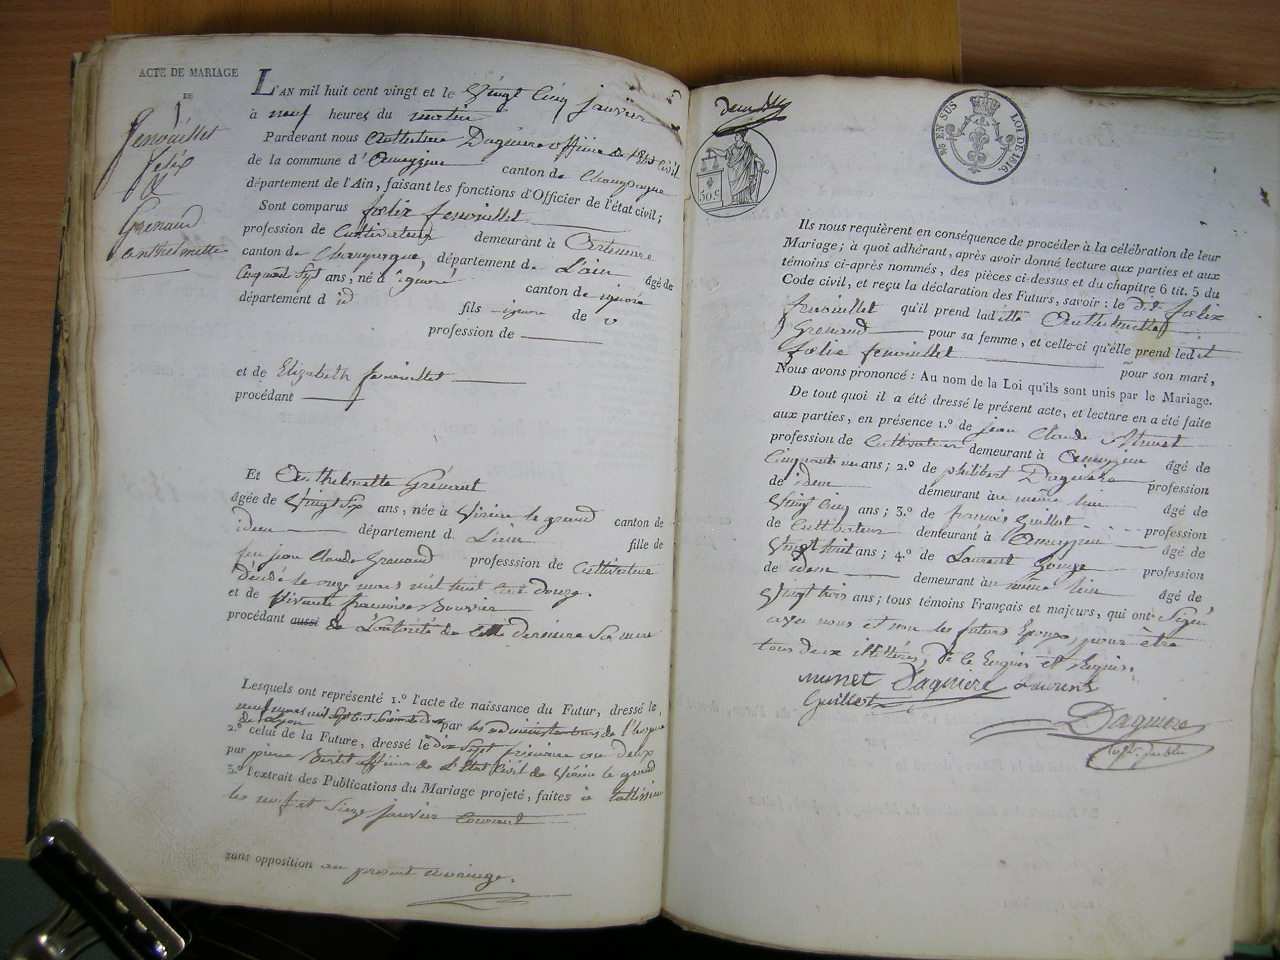 ACTE DE MARIAGE
DE
fenouillet
felix
&
Grenaud
anthelmette
L'AN mil huit cent vingt et le Vingt Cinq janvier
à neuf heures du matin
Pardevant nous Anthelme Daguiere officier de l'état Civil
de la commune d' Ameyzieu canton de Champagne
département de l'Ain, faisant les fonctions d'Officier de l'état civil;
Sont comparus felix fenouillet
profession de Cultivateur demeurant à
canton de Champagne, département de L'ain âgé de
Cinquante Sept ans, né à ignoré canton de ignoré
département d id
fils ignoré de
profession de
et de Elizabeth fenouillet
procédant
Et Anthelmette Grenaud
âgée de Vingt Six ans, née à Virieu le grand canton de
idem département d L'ain fille de
feu jean Claude Grenaud professsion de Cultivateur
décédé le onze mars mil huit cent douze.
et de vivante françoise Bouvier
procédant aussi de L'autorité de cette derniere Sa mere
Lesquels ont représenté 1.º l'acte de naissance du Futur, dressé le
par les administrateurs de l'hospice
de Lyon
2.º celui de la Future, dressé le dix Sept frimaire an deux
par pierre officier de L'Etat Civil de Virieu le grand
3.º l'extrait des Publications du Mariage projeté, faites à talissieu
les neuf et Seize janvier Courant
sans opposition au présent mariage.
deux
50 C.
25 EN SUS
LOI DE 1816.
Ils nous requièrent en conséquence de procéder à la célébration de leur
Mariage; à quoi adhérant, après avoir donné lecture aux parties et aux
témoins ci-après nommés, des pièces ci-dessus et du chapitre 6 tit. 5 du
Code civil, et reçu la déclaration des Futurs, savoir : le d.t felix
fenouillet qu'il prend ladite Anthelmette
Grenaud pour sa femme, et celle-ci qu'elle prend ledit
felix fenouillet pour son mari,
Nous avons prononcé : Au nom de la Loi qu'ils sont unis par le Mariage.
De tout quoi il a été dressé le présent acte, et lecture en a été faite
aux parties, en présence 1.º de jean Claude Munet
profession de Cultivateur demeurant à Ameyzieu âgé de
Cinquante ans; 2.º de philibert Daguiere profession
de idem demeurant à même lieu âgé de
Vingt Cinq ans; 3.º de françois Guillet profession
de Cultivateur demeurant à Ameyzieu âgé de
Vingt huit ans; 4.º de Laurent profession
de idem demeurant à même lieu âgé de
Vingt trois ans; tous témoins Français et majeurs, qui ont Signé
avec nous et non les futurs Epoux, pour être
tous deux illittérés, de ce Enquis et Requis.
munet Daguiere Laurent
Guillet
Daguiere